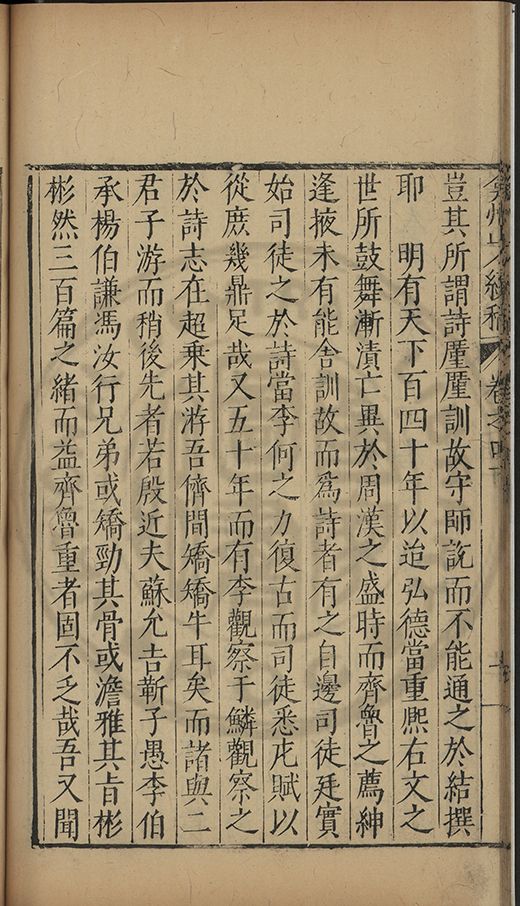 弇州山人續稿 卷之四十
豈其所謂詩厪厪訓故守師說而不能通之於結撰
耶 明有天下百四十年以迨弘德當重熙右文之
世所鼓舞漸漬亡異於周漢之盛時而齊魯之薦紳
逢掖未有能舍訓故而爲詩者有之自邊司徒廷實
始司徒之於詩當李何之力復古而司徒悉庀賦以
從庶幾鼎足哉又五十年而有李觀察于鱗觀察之
於詩志在超乘其游吾儕間矯矯牛耳矣而諸與二
君子游而稍後先者若殷近夫蘇允吉靳子愚李伯
承楊伯謙馮汝行兄弟或矯勁其骨或澹雅其旨彬
彬然三百篇之緒而益齊魯重者固不乏哉吾又聞